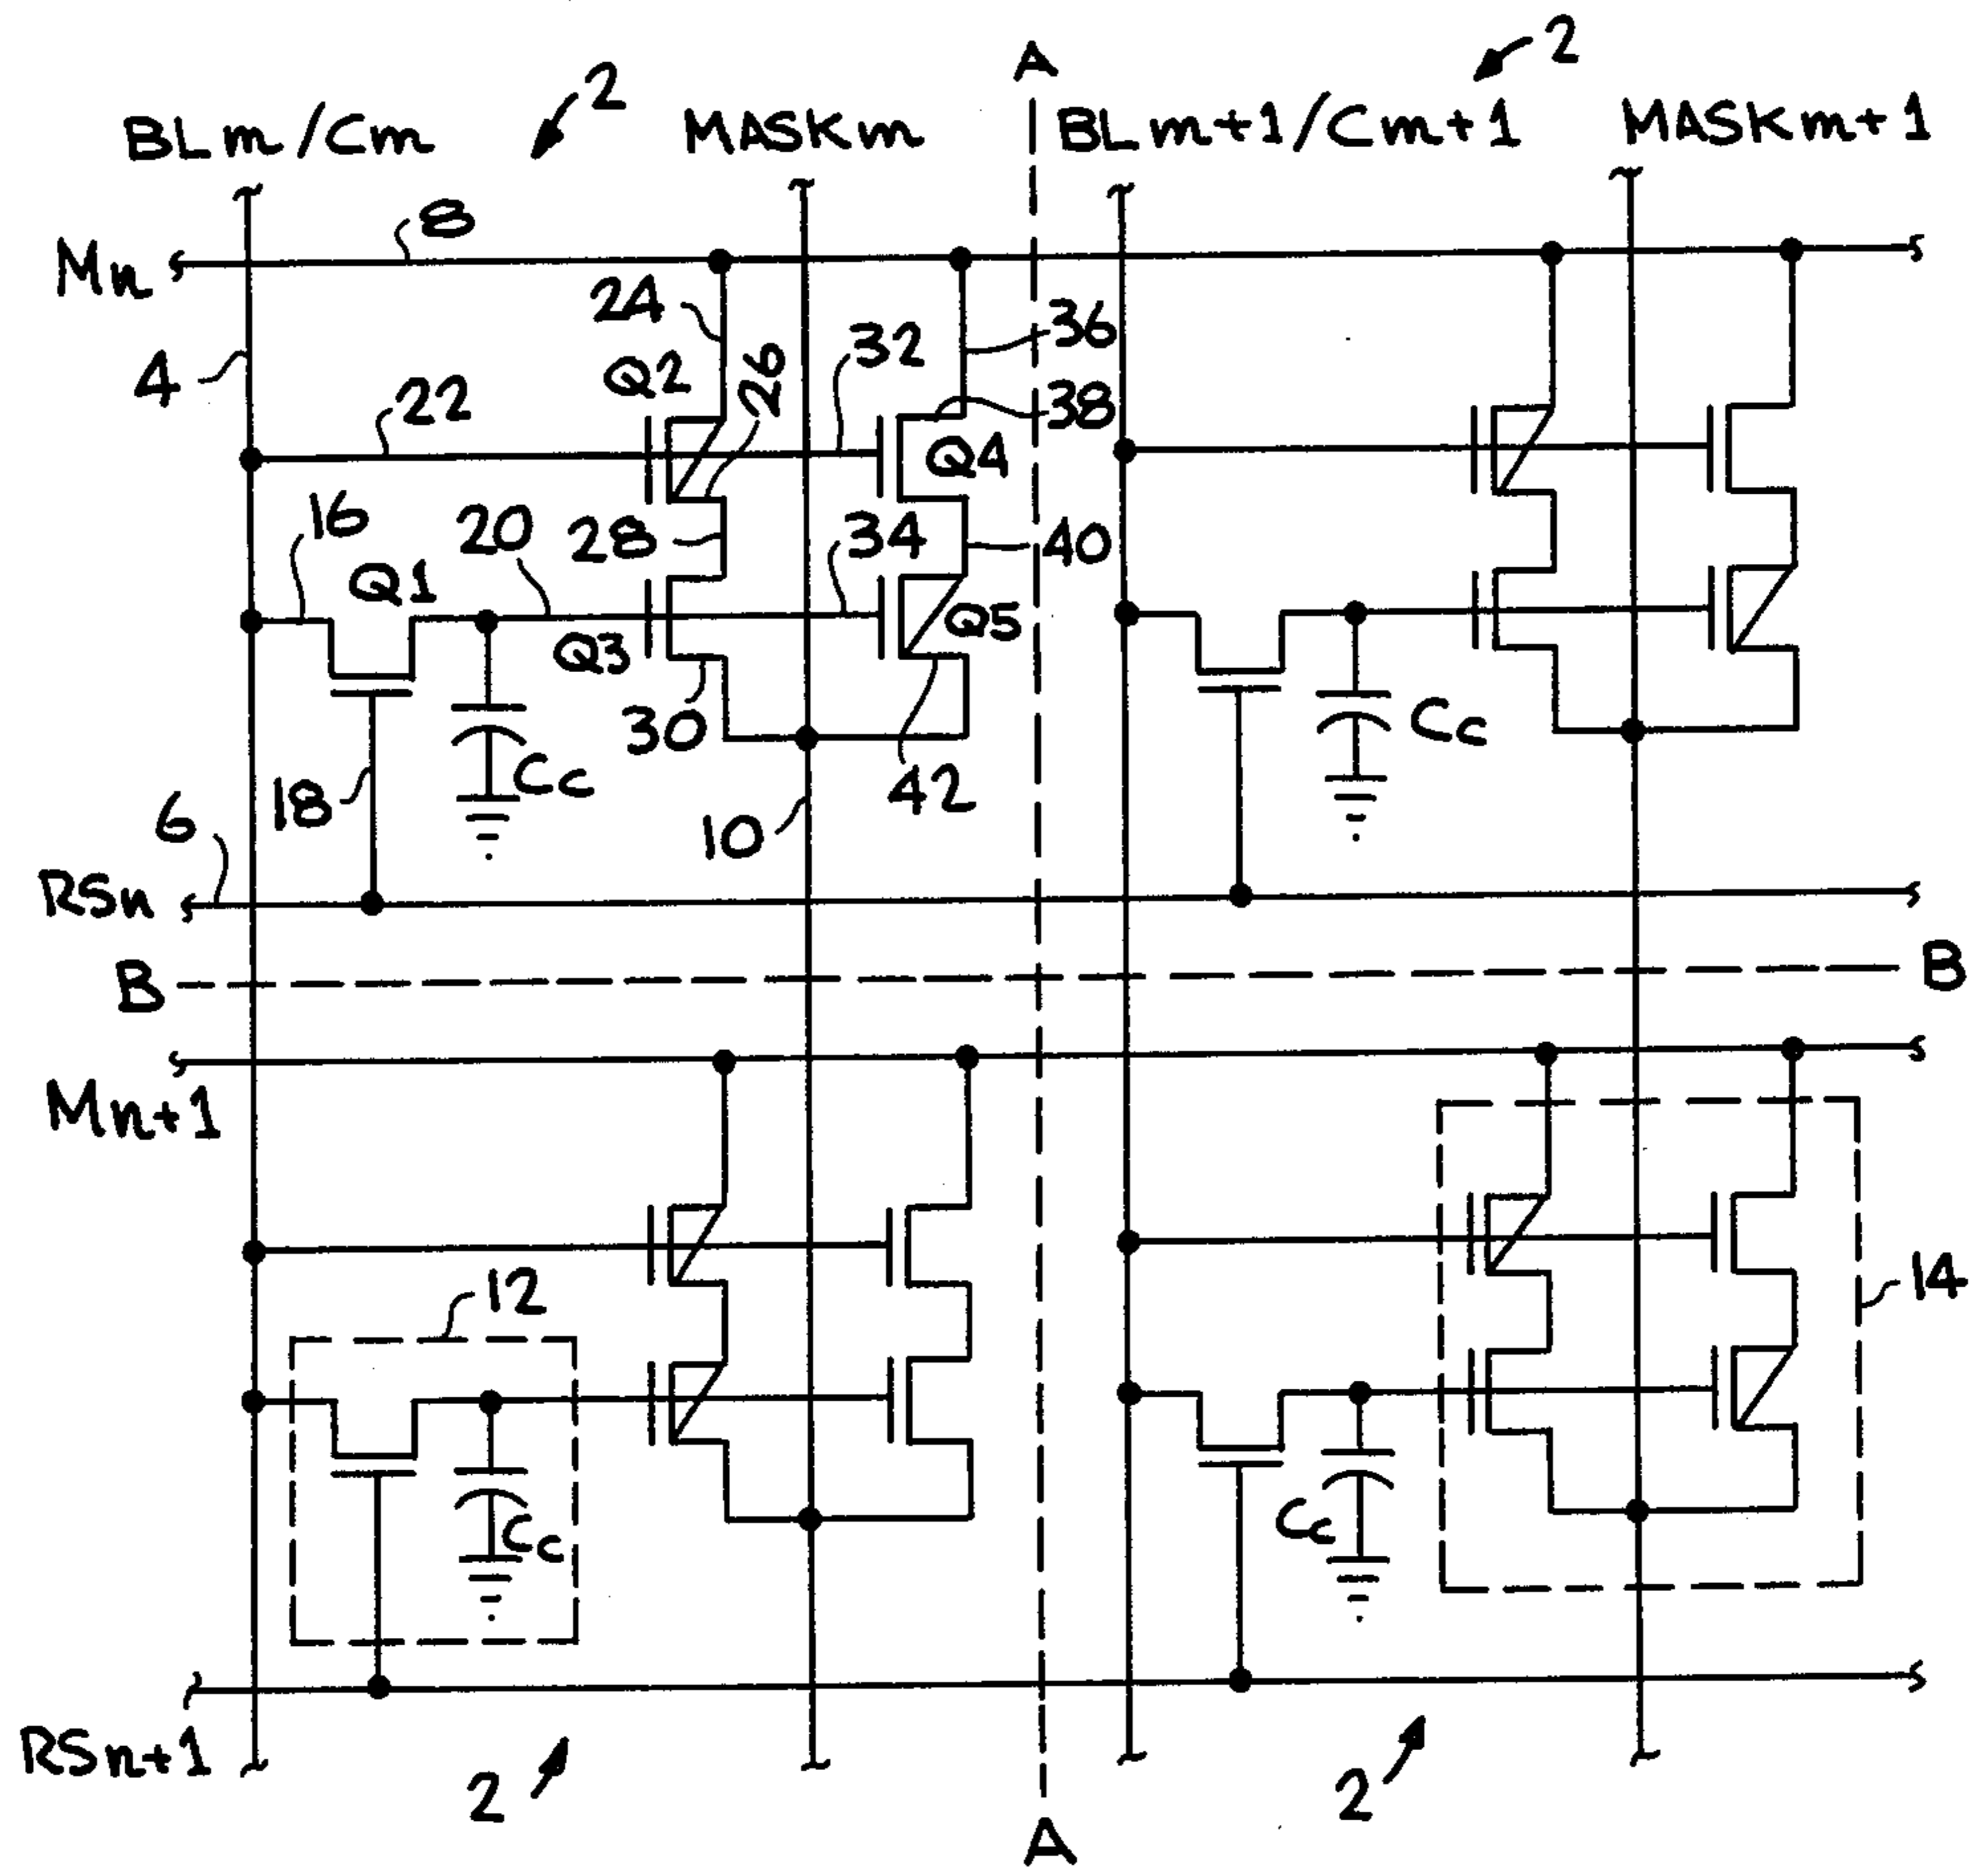 A
2
2
BLm/Cm
MASKm
BLm+1/Cm+1
MASKm+1
8
Mn
24
36
4
Q2
26
32
22
38
Q4
16
20
28
34
40
Q1
Q3
Q5
30
Cc
Cc
18
42
6
10
RSn
B
B
Mn+1
12
14
Cc
Cc
RSn+1
2
2
A